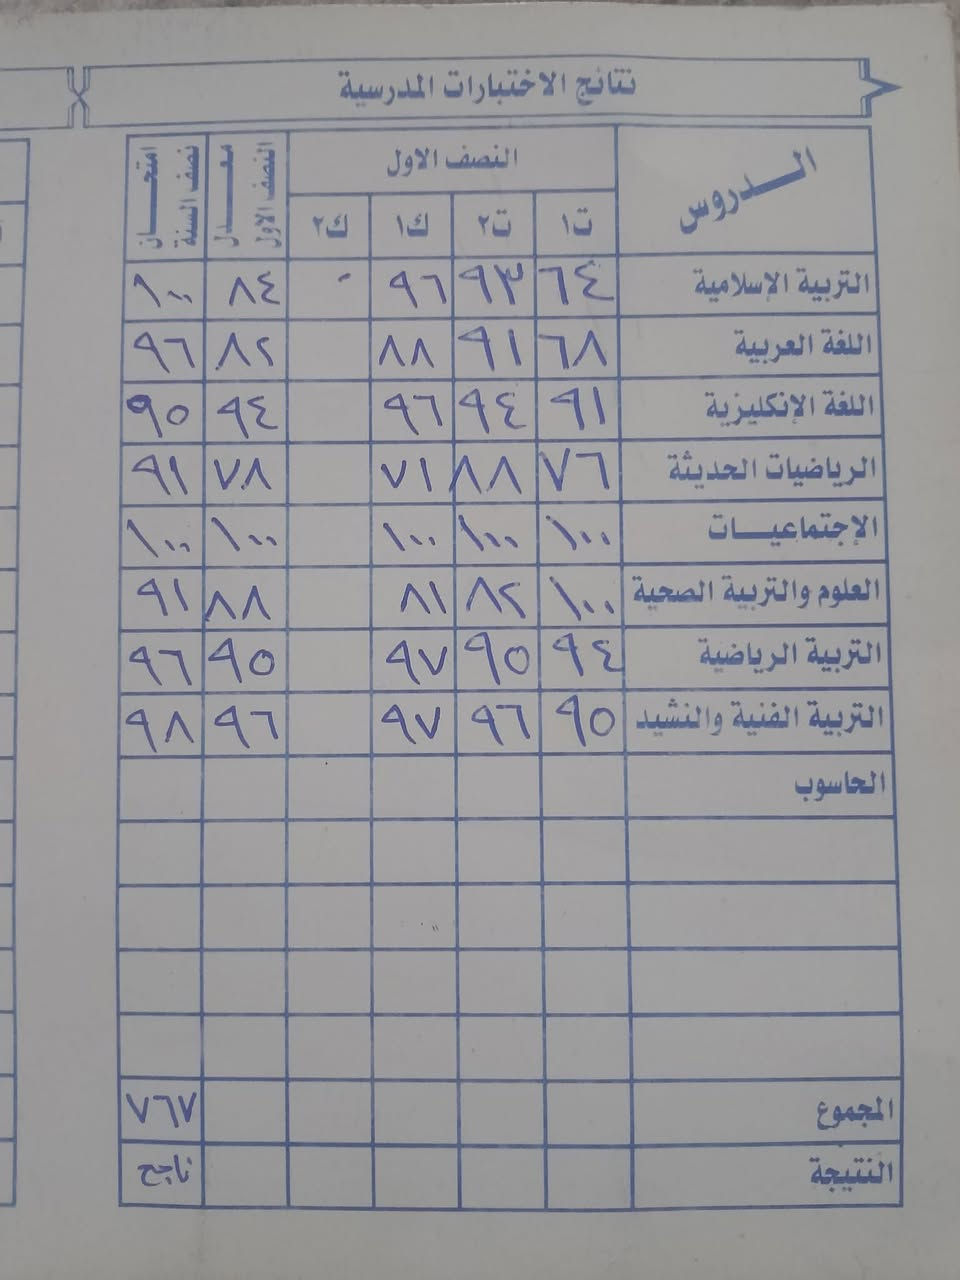 نتائج الاختبارات المدرسية
الـــدروس النصف الاول معـــدل النصف الاول امتحـــان نصف السنة
ت١ ت٢ ك١ ك٢
التربية الإسلامية ٦٤ ٩٣ ٩٦ ٨٤ ١٠٠
اللغة العربية ٦٨ ٩١ ٨٨ ٨٢ ٩٦
اللغة الإنكليزية ٩١ ٩٤ ٩٦ ٩٤ ٩٥
الرياضيات الحديثة ٧٦ ٨٨ ٧١ ٧٨ ٩١
الإجتماعيـــات ١٠٠ ١٠٠ ١٠٠ ١٠٠ ١٠٠
العلوم والتربية الصحية ١٠٠ ٨٢ ٨١ ٨٨ ٩١
التربية الرياضية ٩٤ ٩٥ ٩٧ ٩٥ ٩٦
التربية الفنية والنشيد ٩٥ ٩٦ ٩٧ ٩٦ ٩٨
الحاسوب
المجموع ٧٦٧
النتيجة ناجح